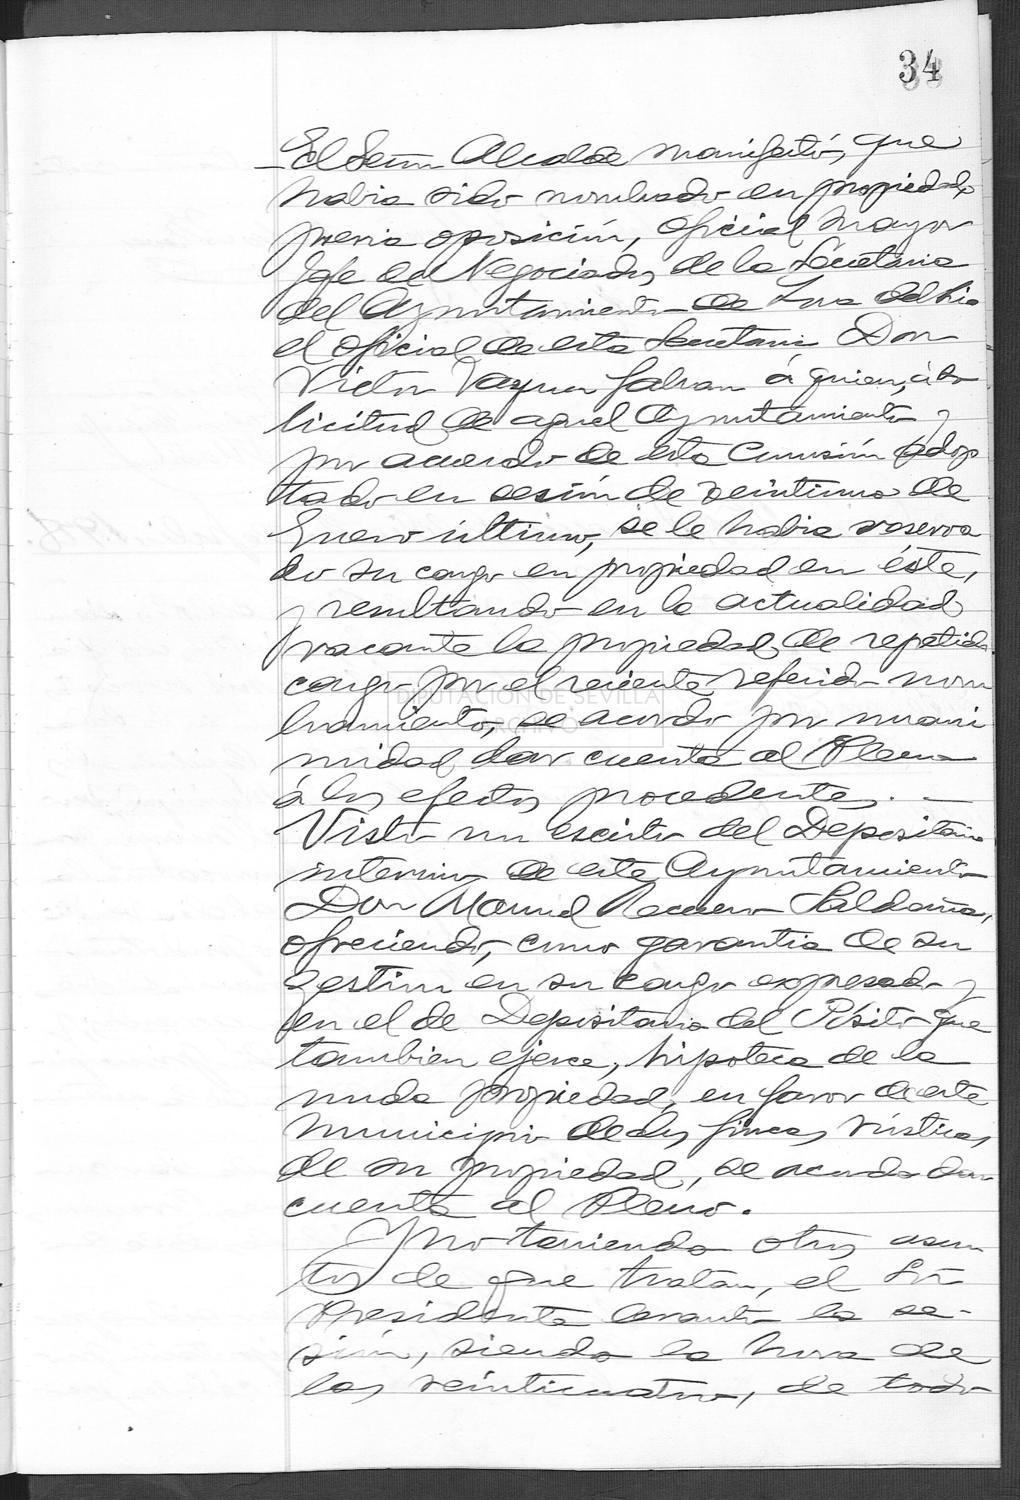 34
El Señor Alcalde manifestó, que
habia sido nombrado en propiedad,
previa oposición, oficial mayor
Jefe de Negociados de la Secretaria
del Ayuntamiento de Lora del Rio
el oficial de esta Secretaria Don
Victor Vazquez Galvan á quien, á so
licitud de aquel Ayuntamiento y
por acuerdo de esta Comisión adop
tado en sesión de veintiuno de
Enero último, se le habia reserva
do su cargo en propiedad en éste,
y resultando en la actualidad
vacante la propiedad de repetido
cargo por el reciente referido nom
bramiento, se acordó por unani
midad dar cuenta al Pleno
á los efectos procedentes. —
Visto un escrito del Depositario
interino de este Ayuntamiento
Don Manuel Saldaña,
ofreciendo, como garantia de su
gestión en su cargo expresado y
en el de Depositario del Pósito que
tambien ejerce, hipoteca de la
nuda propiedad, en favor de este
Municipio de dos fincas rústicas
de su propiedad, se acuerda dar
cuenta al Pleno.
Y no teniendo otros asun
tos de que tratar, el Sr
Presidente levantó la se-
sión, siendo la hora de
las veinticuatro, de todo
DIPUTACIÓN DE SEVILLA
ARCHIVO